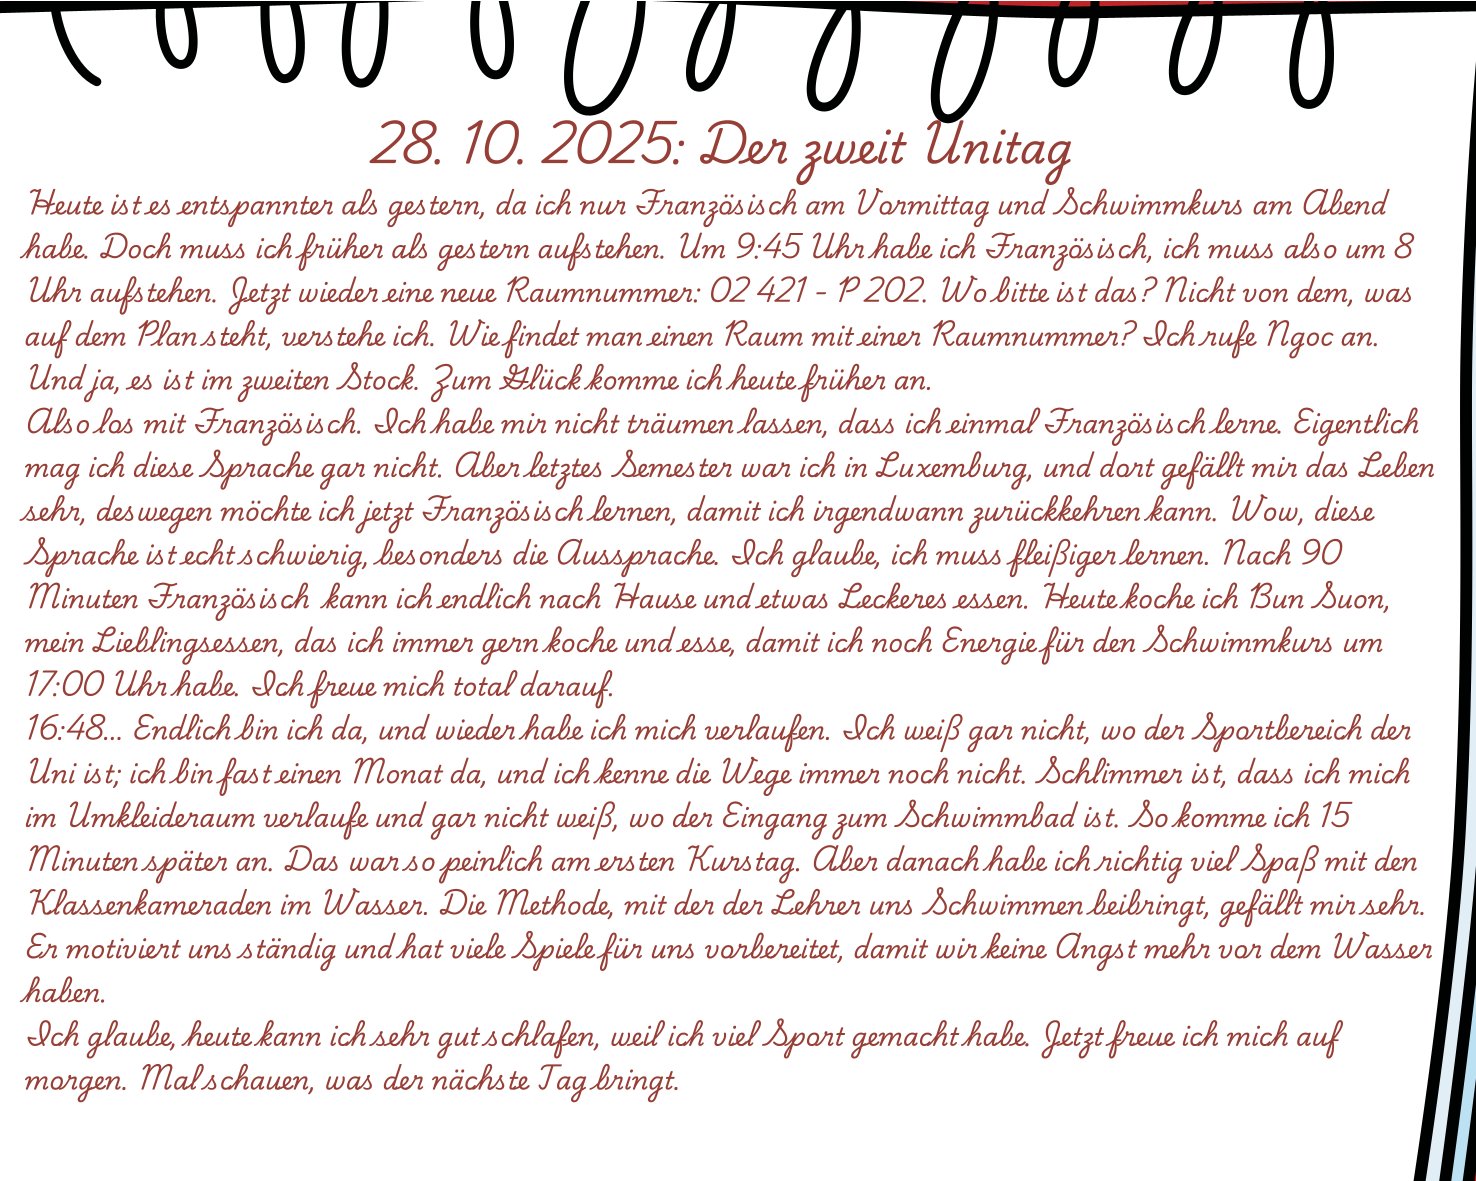 28. 10. 2025: Der zweit Unitag
Heute ist es entspannter als gestern, da ich nur Französisch am Vormittag und Schwimmkurs am Abend
habe. Doch muss ich früher als gestern aufstehen. Um 9:45 Uhr habe ich Französisch, ich muss also um 8
Uhr aufstehen. Jetzt wieder eine neue Raumnummer: 02 421 - P 202. Wo bitte ist das? Nicht von dem, was
auf dem Plan steht, verstehe ich. Wie findet man einen Raum mit einer Raumnummer? Ich rufe Ngoc an.
Und ja, es ist im zweiten Stock. Zum Glück komme ich heute früher an.
Also los mit Französisch. Ich habe mir nicht träumen lassen, dass ich einmal Französisch lerne. Eigentlich
mag ich diese Sprache gar nicht. Aber letztes Semester war ich in Luxemburg, und dort gefällt mir das Leben
sehr, deswegen möchte ich jetzt Französisch lernen, damit ich irgendwann zurückkehren kann. Wow, diese
Sprache ist echt schwierig, besonders die Aussprache. Ich glaube, ich muss fleißiger lernen. Nach 90
Minuten Französisch kann ich endlich nach Hause und etwas Leckeres essen. Heute koche ich Bun Suon,
mein Lieblingsessen, das ich immer gern koche und esse, damit ich noch Energie für den Schwimmkurs um
17:00 Uhr habe. Ich freue mich total darauf.
16:48... Endlich bin ich da, und wieder habe ich mich verlaufen. Ich weiß gar nicht, wo der Sportbereich der
Uni ist; ich bin fast einen Monat da, und ich kenne die Wege immer noch nicht. Schlimmer ist, dass ich mich
im Umkleideraum verlaufe und gar nicht weiß, wo der Eingang zum Schwimmbad ist. So komme ich 15
Minuten später an. Das war so peinlich am ersten Kurstag. Aber danach habe ich richtig viel Spaß mit den
Klassenkameraden im Wasser. Die Methode, mit der der Lehrer uns Schwimmen beibringt, gefällt mir sehr.
Er motiviert uns ständig und hat viele Spiele für uns vorbereitet, damit wir keine Angst mehr vor dem Wasser
haben.
Ich glaube, heute kann ich sehr gut schlafen, weil ich viel Sport gemacht habe. Jetzt freue ich mich auf
morgen. Mal schauen, was der nächste Tag bringt.